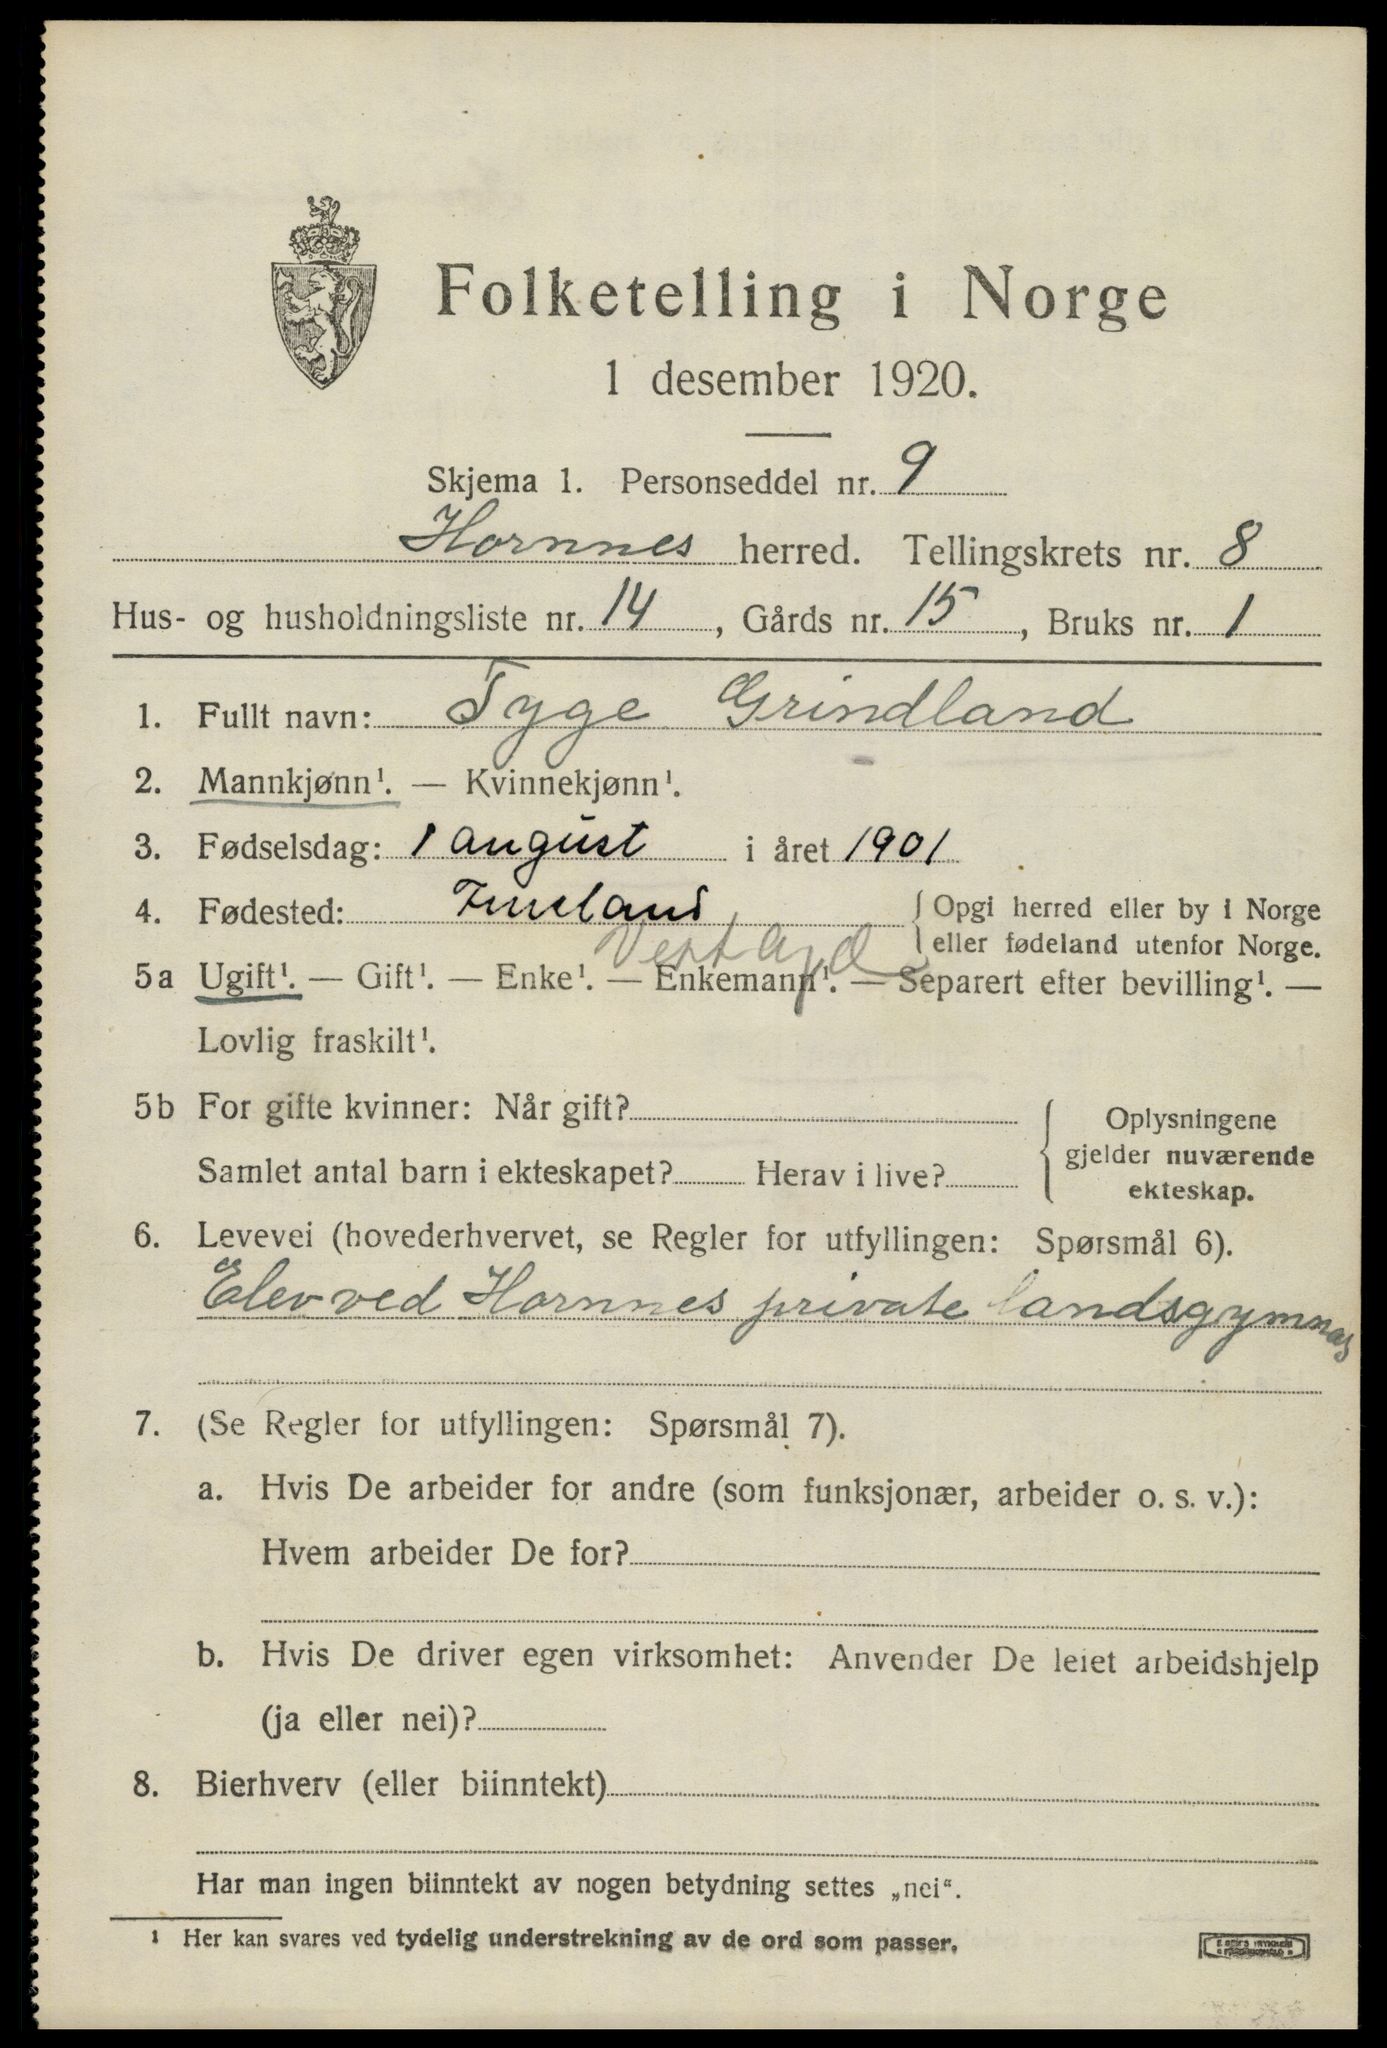 Folketelling i Norge
1 desember 1920.
Skjema 1. Personseddel nr. 9
Hornnes herred. Tellingskrets nr. 8
Hus- og husholdningsliste nr. 14, Gårds nr. 15, Bruks nr. 1
1. Fullt navn: Tyge Grindland
2. Mannkjønn¹. — Kvinnekjønn¹.
3. Fødselsdag: 1 august i året 1901
4. Fødested: { Opgi herred eller by i Norge
eller fødeland utenfor Norge.
Vest Agd
5a Ugift¹. — Gift¹. — Enke¹. — Enkemann¹. — Separert efter bevilling¹. —
Lovlig fraskilt¹.
5b For gifte kvinner: Når gift? { Oplysningene
gjelder nuværende
Samlet antal barn i ekteskapet? Herav i live?
ekteskap.
6. Levevei (hovederhvervet, se Regler for utfyllingen: Spørsmål 6).
Elev ved Hornnes private landsgymnas
7. (Se Regler for utfyllingen: Spørsmål 7).
a. Hvis De arbeider for andre (som funksjonær, arbeider o. s. v.):
Hvem arbeider De for?
b. Hvis De driver egen virksomhet: Anvender De leiet arbeidshjelp
(ja eller nei)?
8. Bierhverv (eller biinntekt)
Har man ingen biinntekt av nogen betydning settes „nei“.
¹ Her kan svares ved tydelig understrekning av de ord som passer.